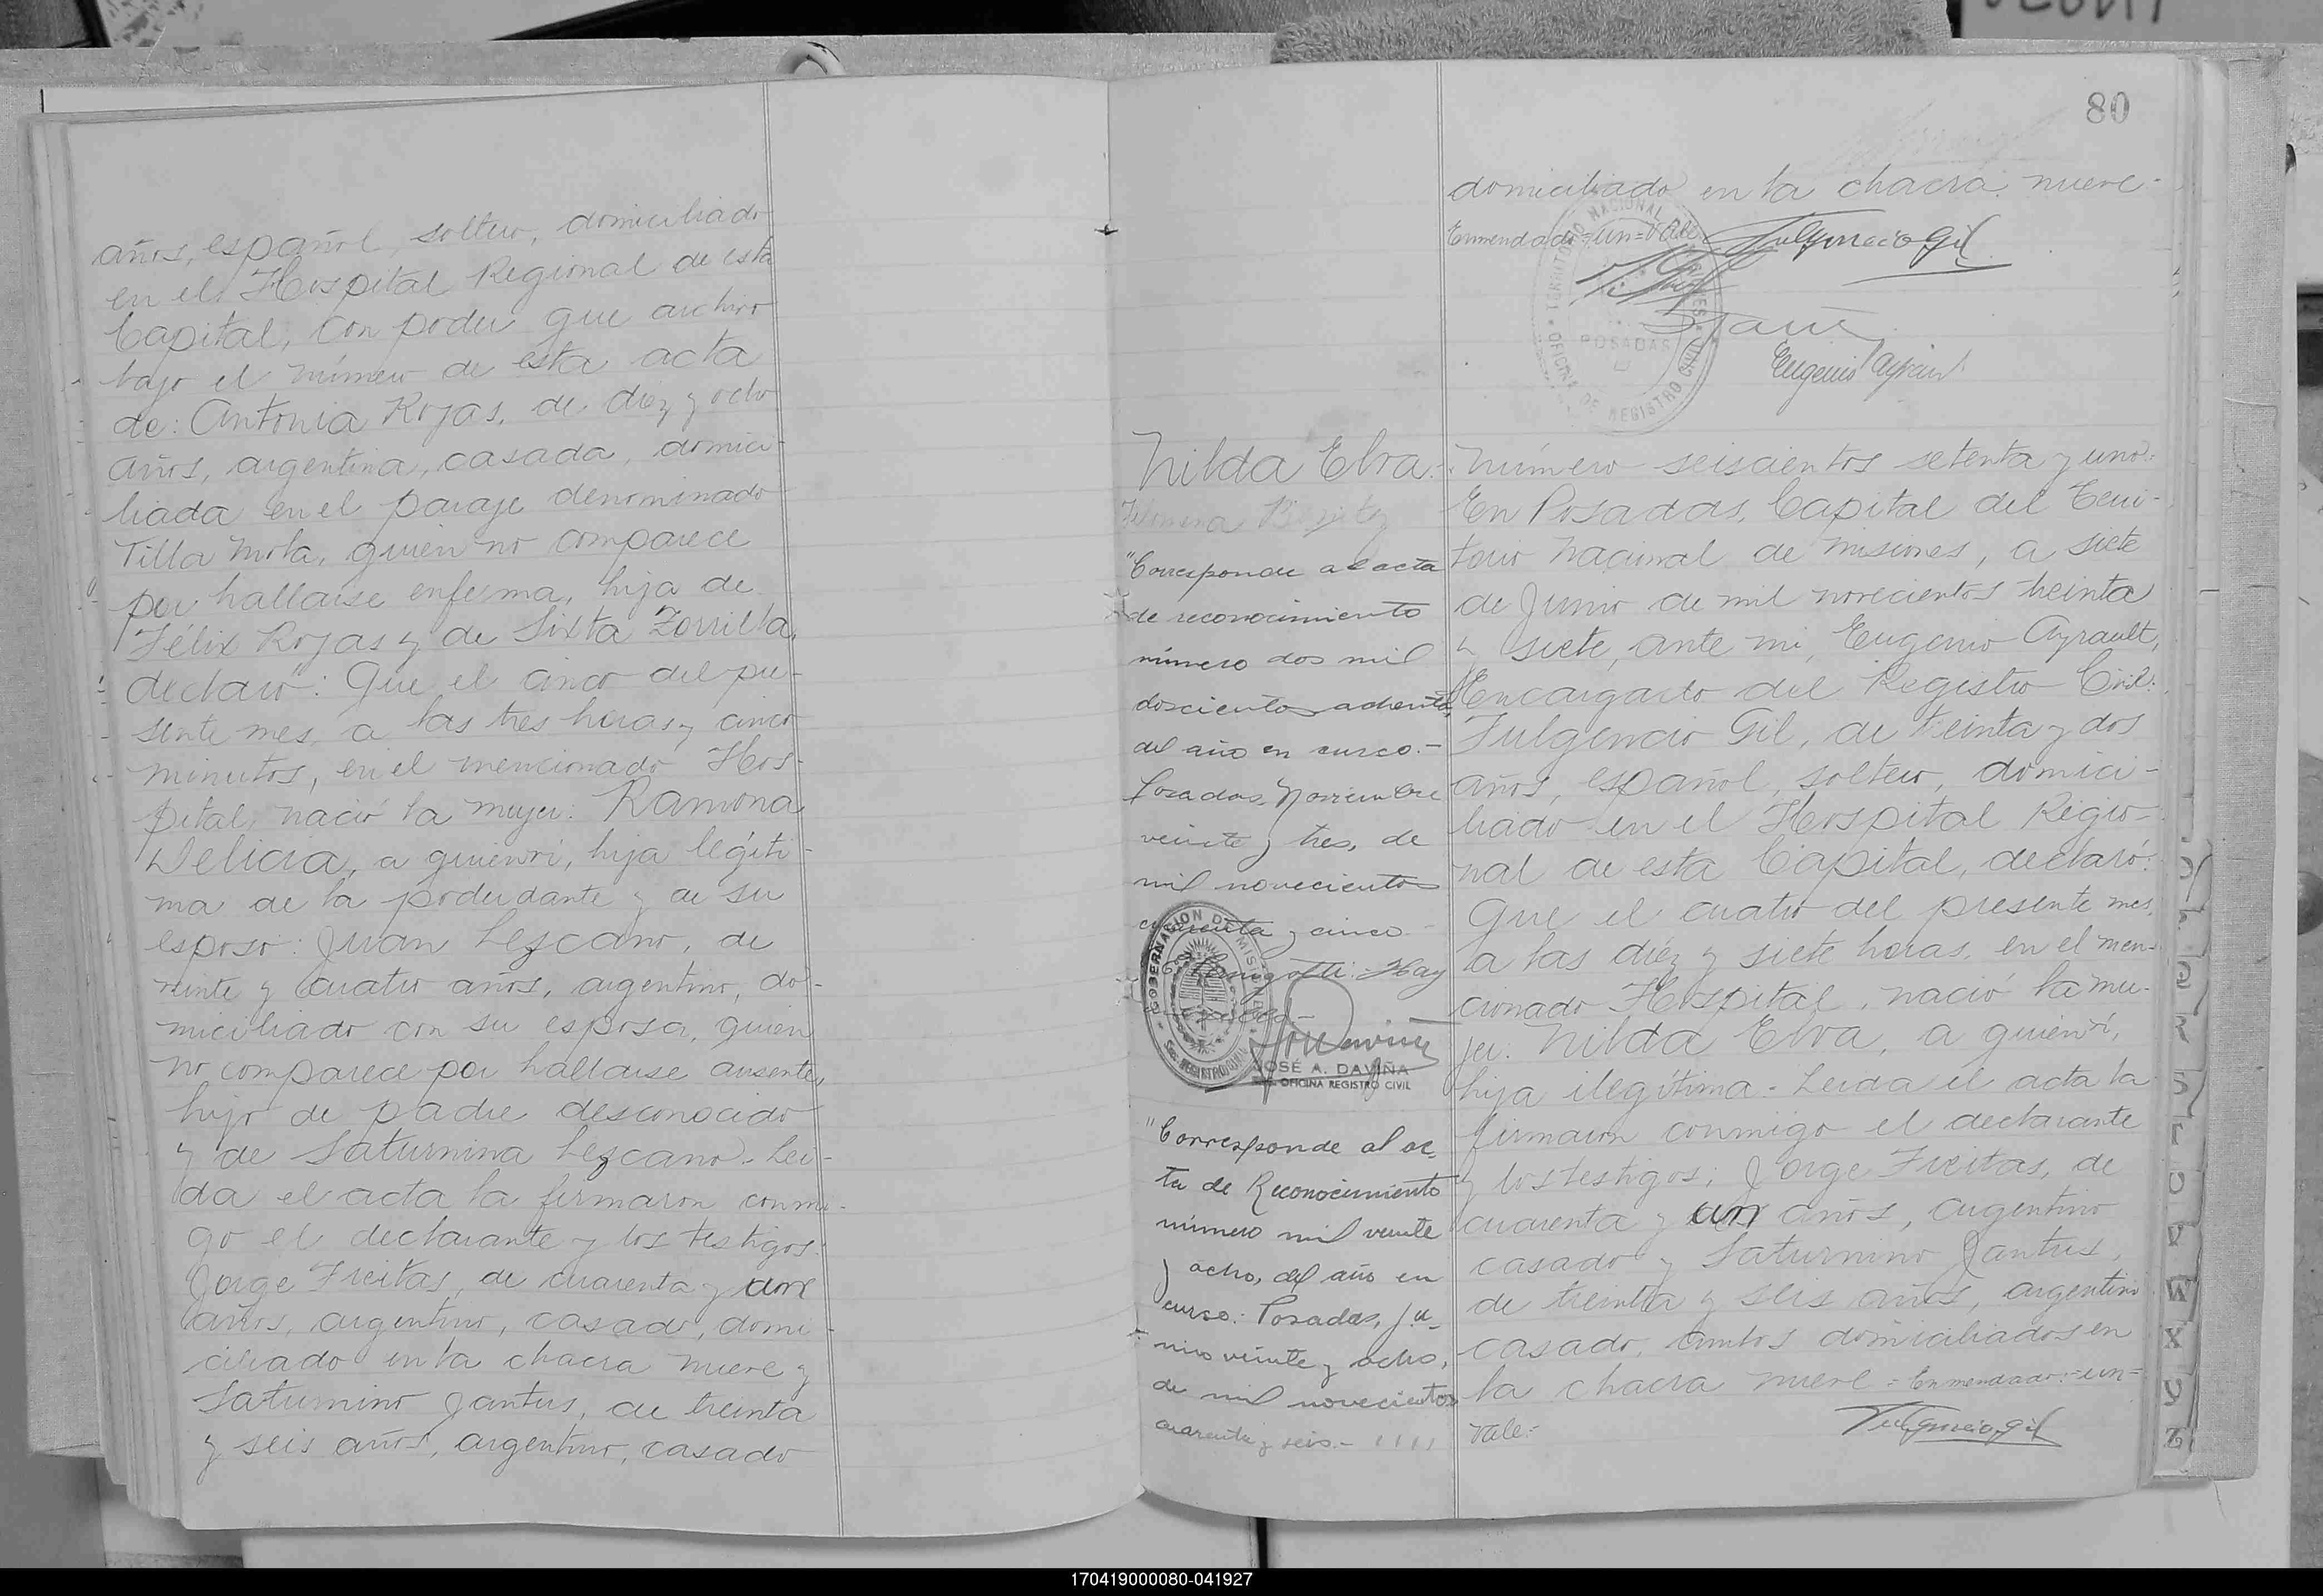 años, español, soltero, domiciliado
en el Hospital Regional de esta
Capital, con poder que archivo
bajo el número de esta acta
de: Antonia Rojas, de diez y ocho
años, argentina, casada, domici-
liada en el paraje denominado
Villa Mola, quien no comparece
por hallarse enferma, hija de
Félix Rojas y de Sixta Zorrilla,
declaró: Que el cinco del pre-
sente mes, a las tres horas y cinco
minutos, en el mencionado Hos-
pital, nació la mujer: Ramona
Delicia, a quien ví, hija legíti-
ma de la poderdante y de su
esposo: Juan Lezcano, de
veinte y cuatro años, argentino, do-
miciliado con su esposa, quien
no comparece por hallarse ausente,
hijo de padre desconocido
y de Saturnina Lezcano. Leí-
da el acta la firmaron conmi-
go el declarante y los testigos:
Jorge Freitas, de cuarenta y un
años, argentino, casado, domi-
ciliado en la chacra nueve y
Saturnino Jantus, de treinta
y seis años, argentino, casado
80
domiciliado en la chacra nueve.-
Enmendado=un=Vale
Fulgencio Gil
TERRITORIO NACIONAL DE MISIONES
POSADAS
OFICINA DE REGISTRO CIVIL
Eugenio Ayrault
Nilda Elva.
"Corresponde al acta
de reconocimiento
número dos mil
doscientos ochenta,
del año en curso.-
Posadas, Noviembre
veinte y tres, de
mil novecientos
cuarenta y cinco.-
Hay
GOBERNACION DE MISIONES
REGISTRO CIVIL
JOSÉ A. DAVIÑA
OFICINA REGISTRO CIVIL
"Corresponde al ac-
ta de Reconocimiento
número mil veinte
y ocho, del año en
curso: Posadas, Ju-
nio veinte y ocho,
de mil novecientos
cuarenta y seis.-
Número seiscientos setenta y uno:
En Posadas, Capital del Terri-
torio Nacional de Misiones, a siete
de Junio de mil novecientos treinta
y siete, ante mi, Eugenio Ayrault,
Encargado del Registro Civil:
Fulgencio Gil, de treinta y dos
años, español, soltero, domici-
liado en el Hospital Regio-
nal de esta Capital, declaró:
Que el cuatro del presente mes,
a las diéz y siete horas, en el men-
cionado Hospital, nació la mu-
jer: Nilda Elva, a quien ví,
hija ilegítima.- Leída el acta la
firmaron conmigo el declarante
y los testigos: Jorge Freitas, de
cuarenta y un años, argentino
casado y Saturnino Jantus,
de treinta y seis años, argentino
casado, ambos domiciliados en
la chacra nueve.=Enmendado:=un=
Vale:-
Fulgencio Gil
W
X
Y
Z
170419000080-041927